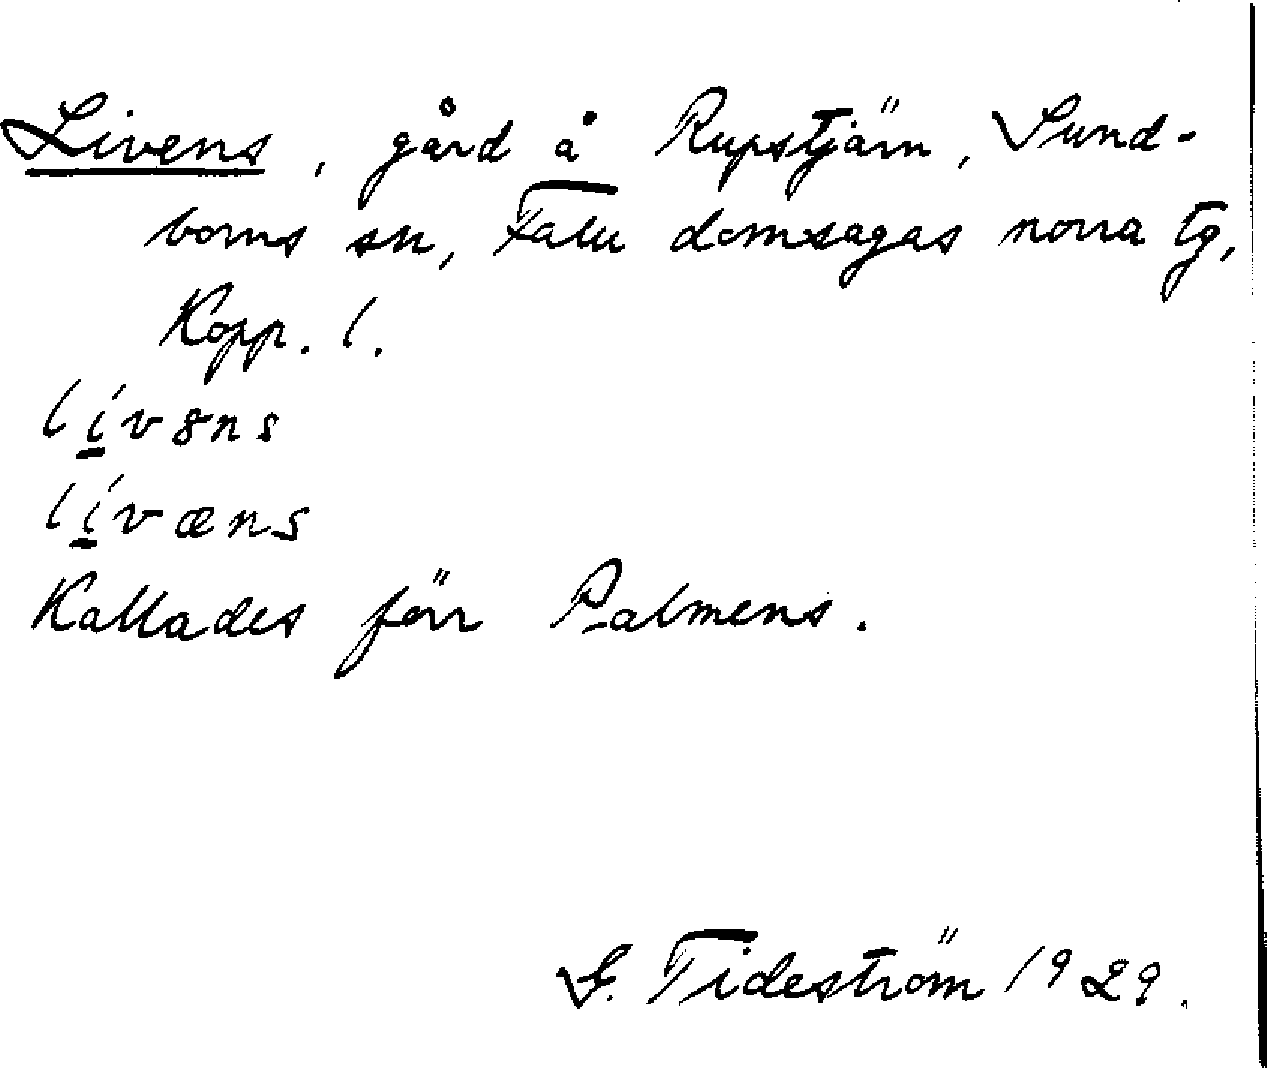 Livens, gård å Rupstjärn, Sund-
borns sn, Falu domsagas norra tg,
Kopp. l.
livəns
livæns
Kallades förr Palmens.
G. Tideström 1929.